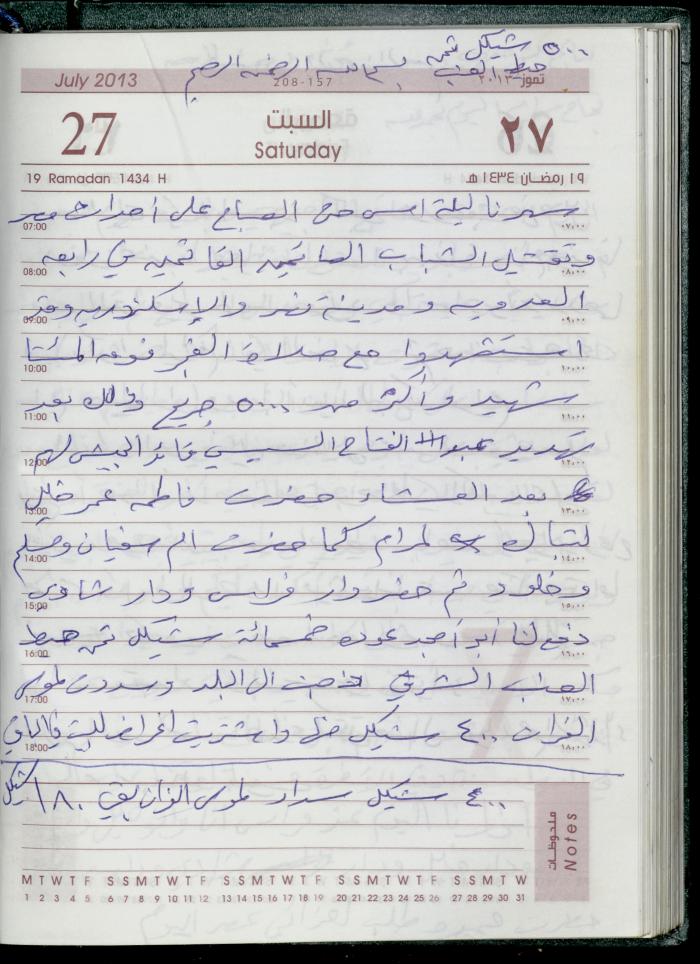 ٥٠٠ شيكل ثمن
حبط العنب
بسم الله الرحمن الرحيم
July 2013
208-157
تموز ٢٠١٣
27
السبت
Saturday
٢٧
19 Ramadan 1434 H
١٩ رمضان ١٤٣٤ هـ
سهرنا ليلة امس حتى الصباح على أحداث مصر
07:00 ٠٧:٠٠
وتقتيل الشباب الصائمين القائمين في رابعه
08:00 ٠٨:٠٠
العدويه و مدينة نصر والإسكندريه وقد
09:00 ٠٩:٠٠
استشهدوا مع صلاة الفجر فوق المئتا
10:00 ١٠:٠٠
شهيد وأكثر من ٥٠٠٠ جريح وذلك بعد
11:00 ١١:٠٠
تهديد عبد الفتاح السيسي قائد الجيش لهم
12:00 ١٢:٠٠
بعد العشاء حضرت فاطمه عمر خليل
13:00 ١٣:٠٠
لتبارك لمرام كما حضرت ام سفيان و
14:00 ١٤:٠٠
وخلود ثم حضر دار فراس ودار شاوي
15:00 ١٥:٠٠
دفع لنا أبو أمجد عوده خمسمائة شيكل ثمن حبط
16:00 ١٦:٠٠
العنب الشرقي ذهبت الى البلد وسددت لموسى
17:00 ١٧:٠٠
الفران ٤٠٠ شيكل منها واشتريت أغراض للبيت بالباقي
18:00 ١٨:٠٠
٤٠٠ شيكل سداد لموسى الفران بقي ١٨٠ شيكل
ملحوظات
Notes
M T W T F S S M T W T F S S M T W T F S S M T W T F S S M T W
1 2 3 4 5 6 7 8 9 10 11 12 13 14 15 16 17 18 19 20 21 22 23 24 25 26 27 28 29 30 31